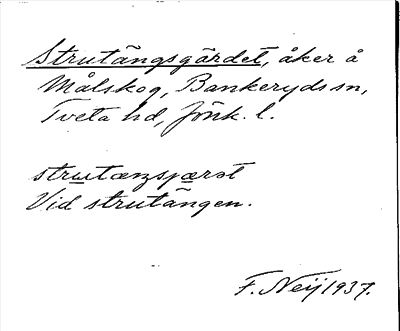 Strutängsgärdet, åker å
Målskog, Bankeryds sn,
Tveta hd, Jönk. l.
strutæŋsjæꝛət
Vid strutängen.
F. Neij 1937.